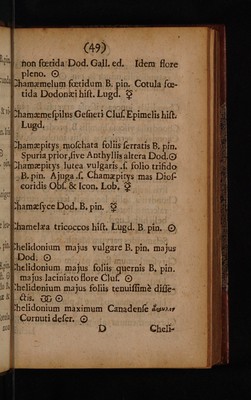 (49)
non fœtida Dod. Gall. ed. Idem flore
pleno. ☉
Chamæmelum fœtidum B. pin. Cotula fœ-
tida Dodonæi hist. Lugd. ☿
Chamæmespilus Gesneri Cluſ. Epimelis hist.
Lugd.
Chamæpitys moschata foliis ſerratis B. pin.
Spuria prior, ſive Anthyllis altera Dod. ☉
Chamæpitys lutea vulgaris .ſ. folio trifido
B. pin. Ajuga .ſ. Chamæpitys mas Dioſ-
coridis Obſ. & Icon. Lob. ☿
Chamæſyce Dod. B. pin. ☿
Chamelæa tricoccos hist. Lugd. B. pin. ☉
Chelidonium majus vulgare B. pin. majus
Dod. ☉
Chelidonium majus foliis quernis B. pin.
majus laciniato flore Cluſ. ☉
Chelidonium majus foliis tenuiſſimè diſſe-
ctis. ☉
Chelidonium maximum Canadenſe
Cornuti deſer. ☉
D Cheli-